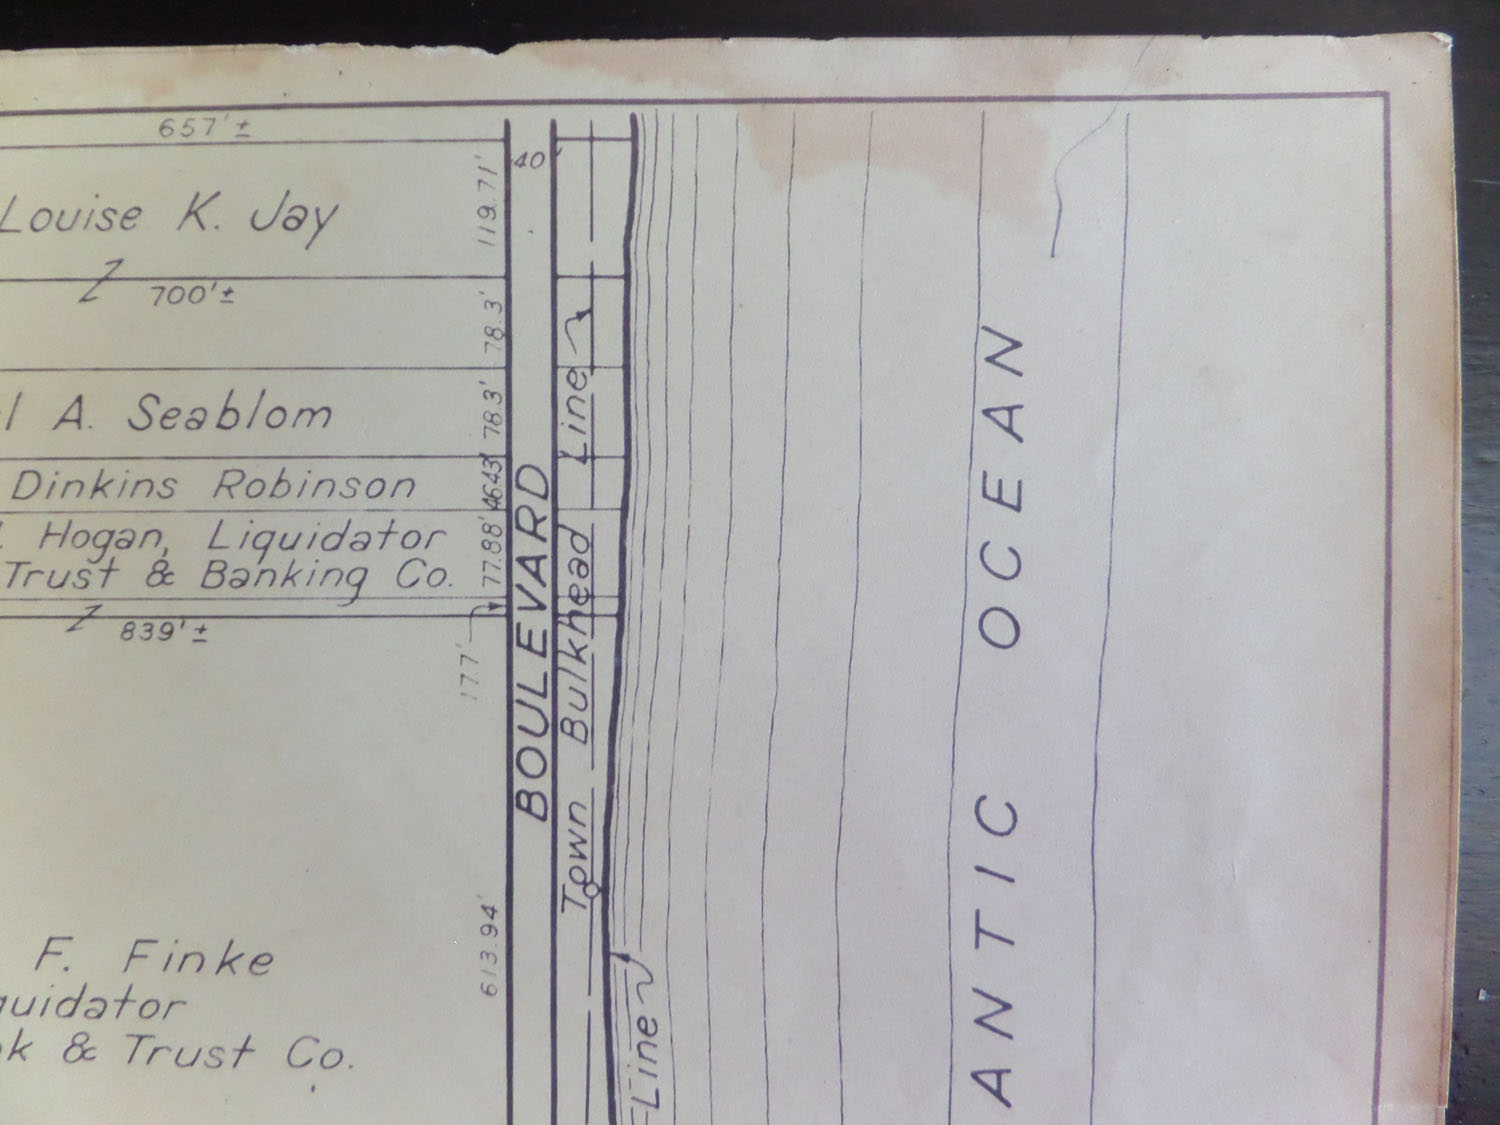 657'±
40'
119.71'
Louise K. Jay
700'±
78.3'
A. Seablom
78.3'
Dinkins Robinson
46.43'
Hogan, Liquidator
Trust & Banking Co.
77.88'
839'±
17.7'
BOULEVARD
Town Bulkhead Line
OCEAN
ANTIC
613.94'
F. Finke
quidator
k & Trust Co.
Line